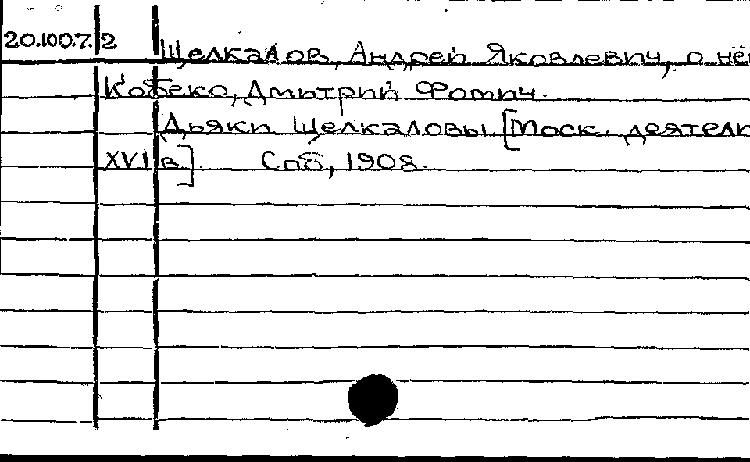 20.100.7.2 Щелкалов, Андрей Яковлевич, о нём
Кобеко, Дмитрий Фомич.
Дьяки Щелкаловы [Моск. деятели
XVI в.]. Спб, 1908.